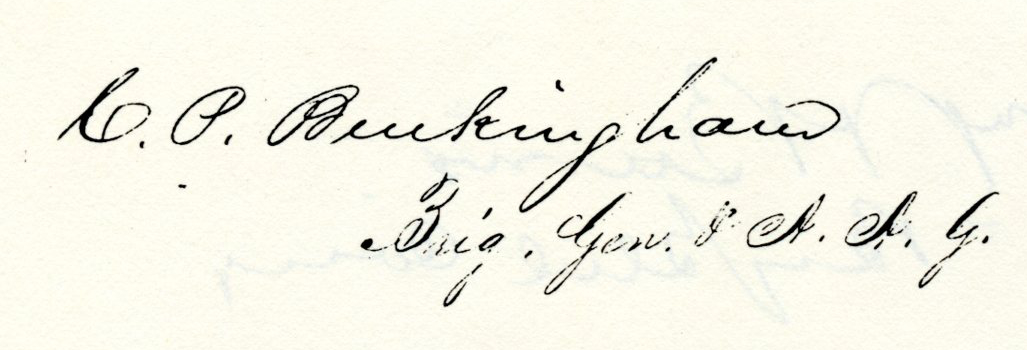 C. P. Buckingham
Brig. Gen. & A. A. G.